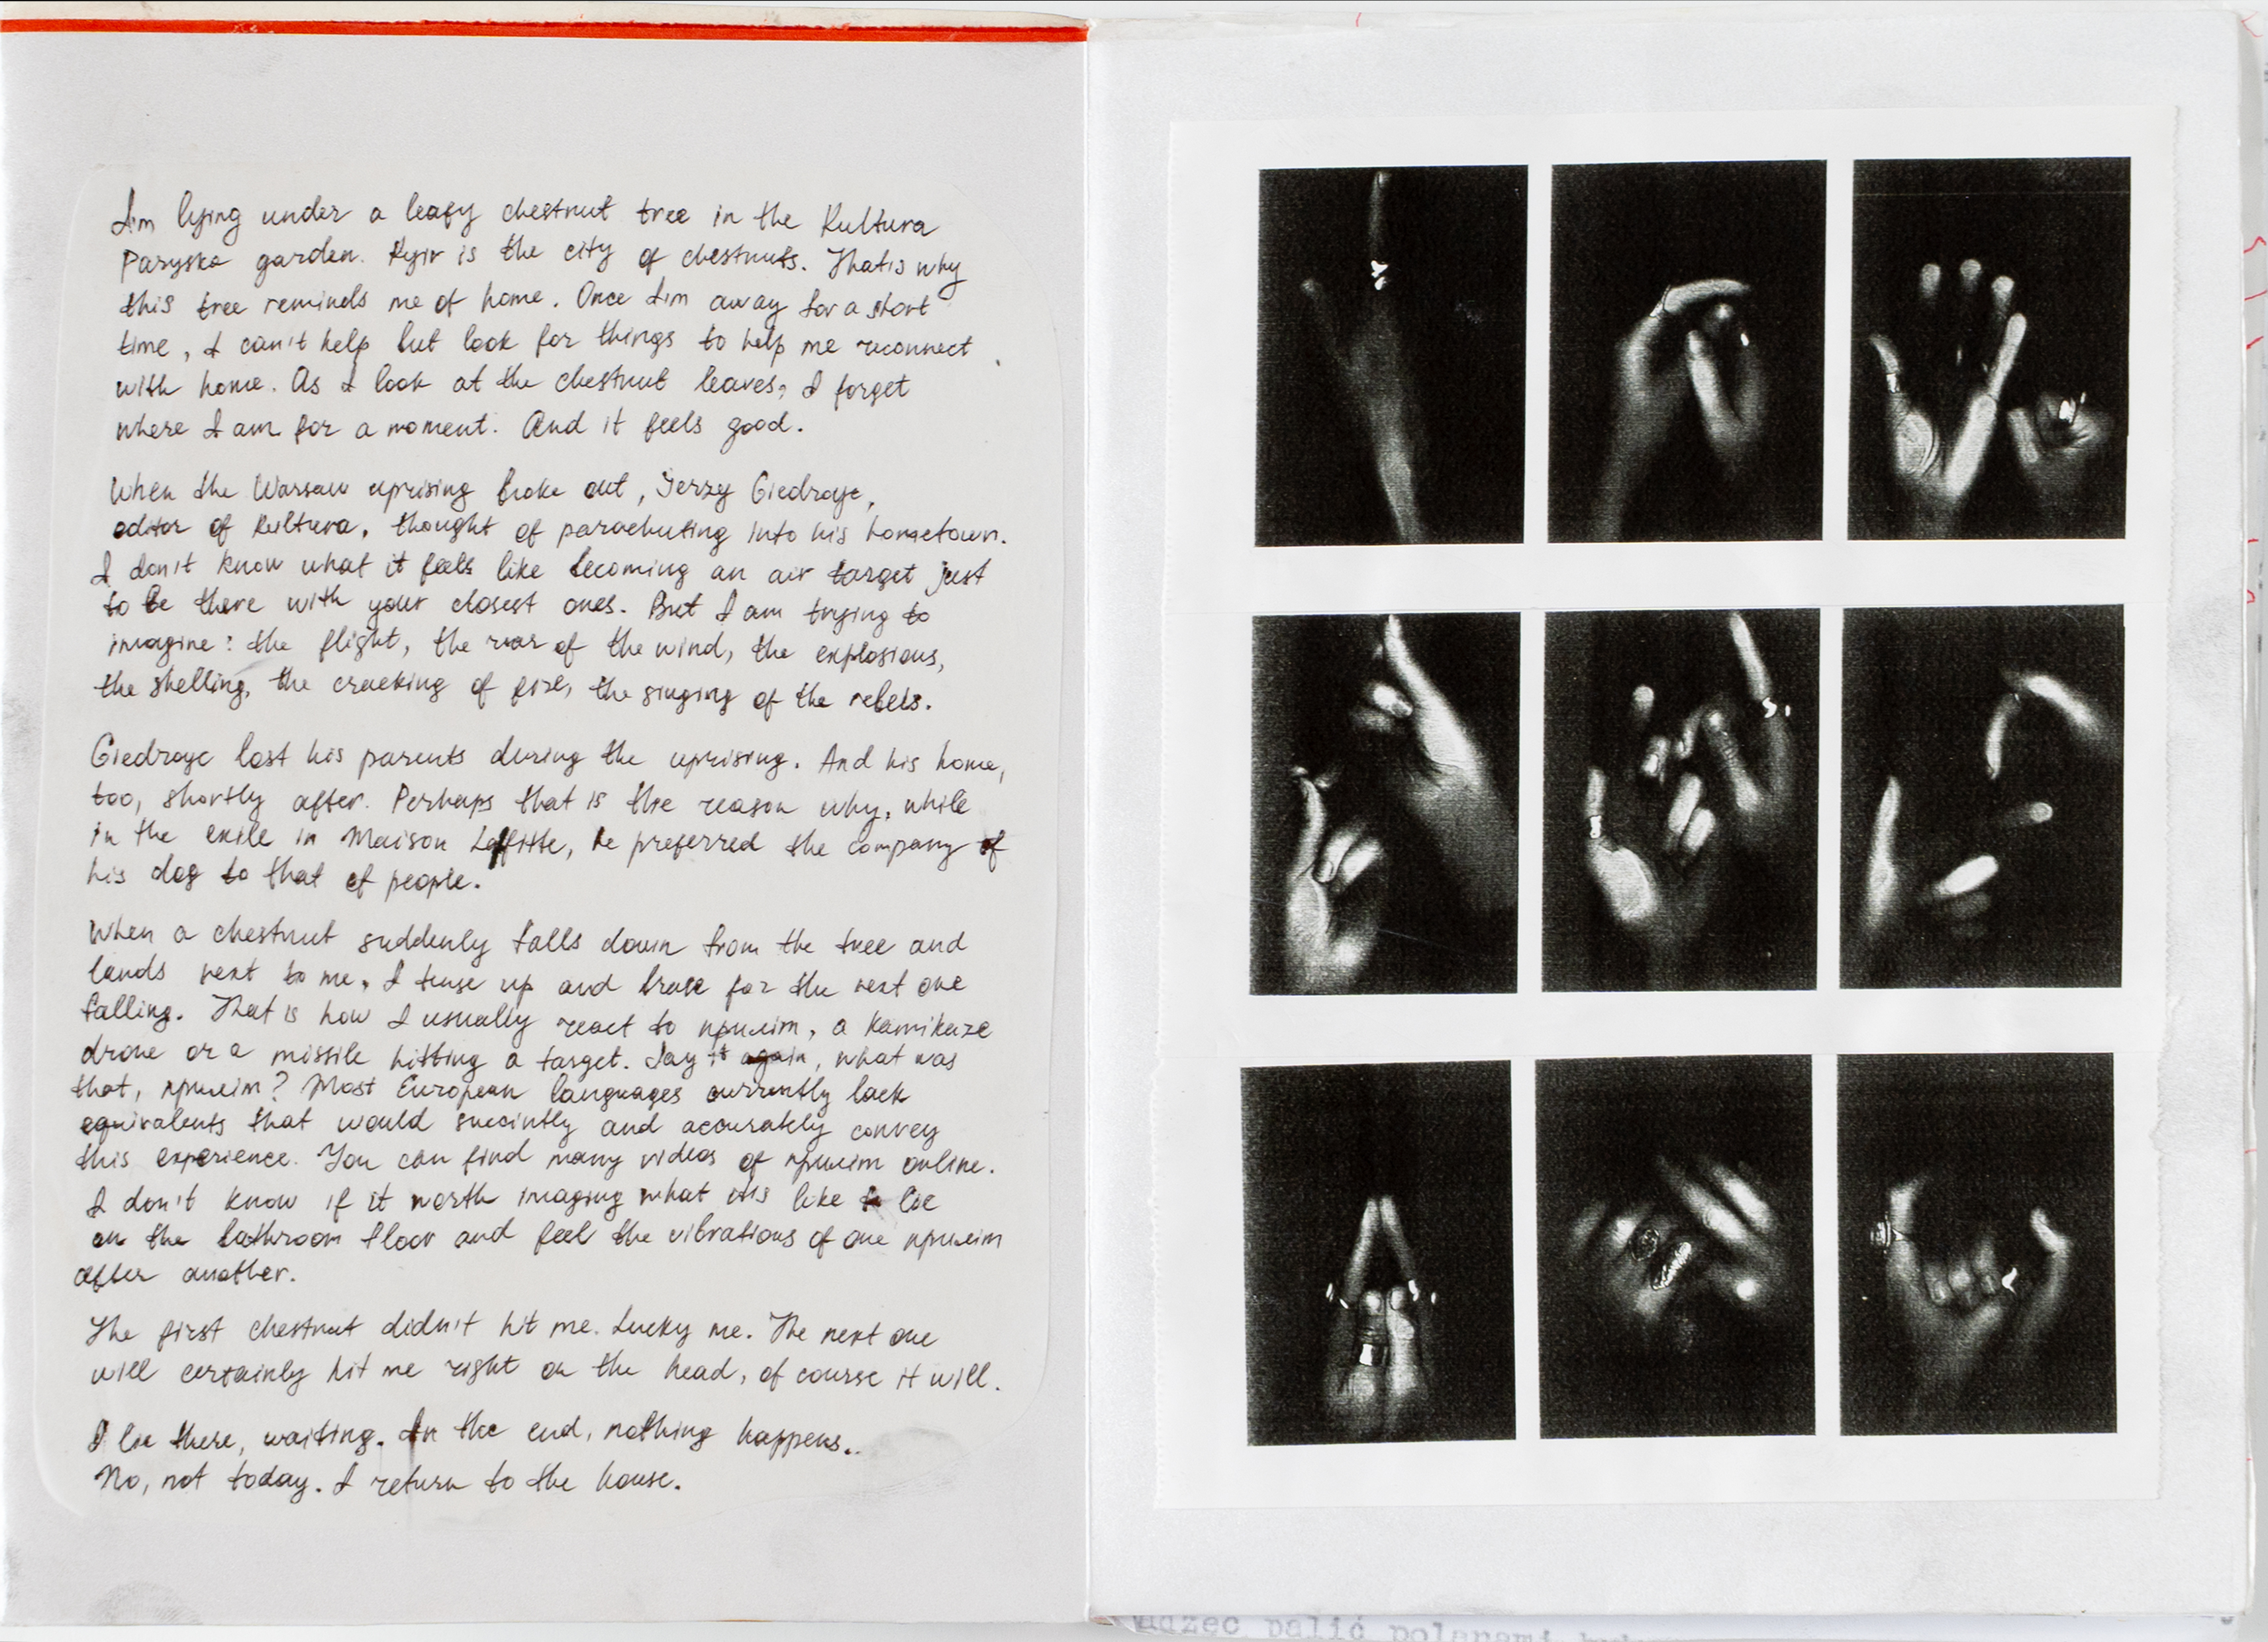 I'm lying under a leafy chestnut tree in the Kultura
Paryska garden. Kyiv is the city of chestnuts. That is why
this tree reminds me of home. Once I'm away for a short
time, I can't help but look for things to help me reconnect
with home. As I look at the chestnut leaves, I forget
where I am for a moment. And it feels good.
When the Warsaw uprising broke out, Jerzy Giedroyc,
editor of Kultura, thought of parachuting into his hometown.
I don't know what it feels like becoming an air target just
to be there with your closest ones. But I am trying to
imagine: the flight, the roar of the wind, the explosions,
the shelling, the cracking of fire, the singing of the rebels.
Giedroyc lost his parents during the uprising. And his home,
too, shortly after. Perhaps that is the reason why, while
in the exile in Maison Laffitte, he preferred the company of
his dog to that of people.
When a chestnut suddenly falls down from the tree and
lands next to me, I tense up and brace for the next one
falling. That is how I usually react to приліт, a kamikaze
drone or a missile hitting a target. Say it again, what was
that, приліт? Most European languages currently lack
equivalents that would succintly and accurately convey
this experience. You can find many videos of приліт online.
I don't know if it worth imaging what it is like to lie
on the bathroom floor and feel the vibrations of one приліт
after another.
The first chestnut didn't hit me. Lucky me. The next one
will certainly hit me right on the head, of course it will.
I lie there, waiting. In the end, nothing happens..
No, not today. I return to the house.
palić polanami